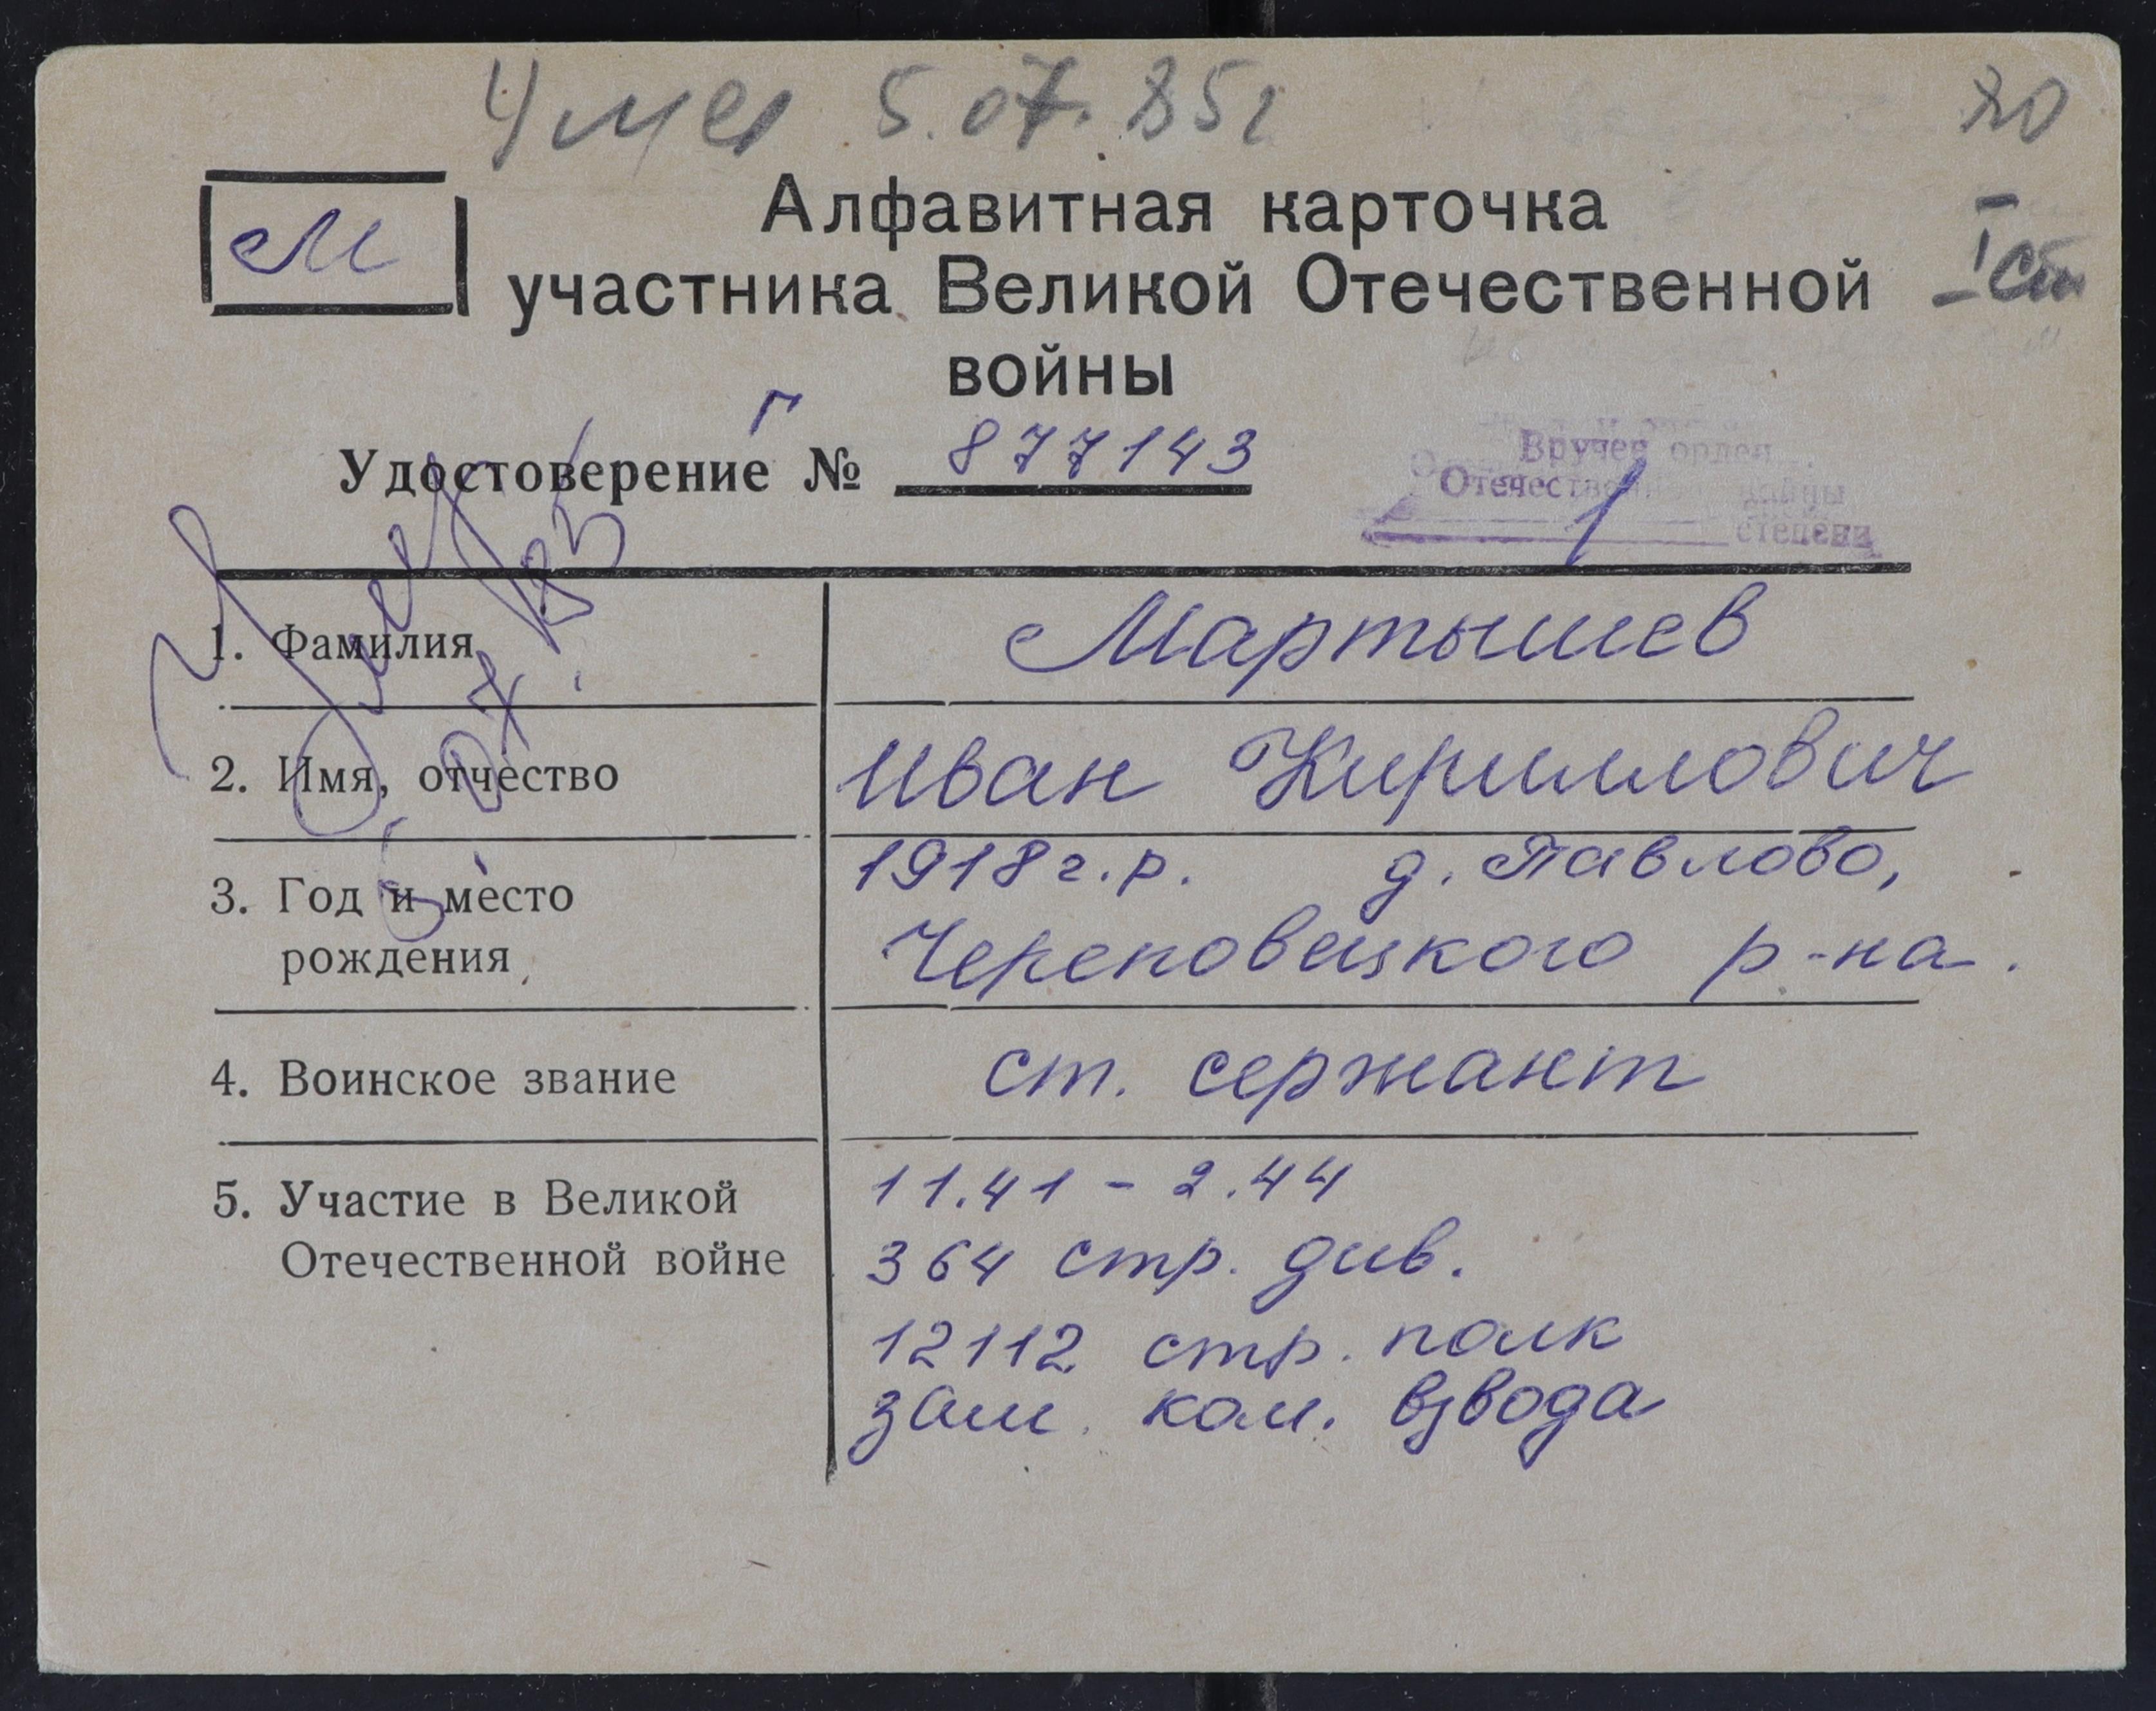 Умер 5.07.85г
80
I ст
М
Алфавитная карточка
участника Великой Отечественной
войны
Удостоверение № Г 877143
Вручен орден
Отечественной войны
1 степени
Умер
5.07.85
1. Фамилия Мартышев
2. Имя, отчество Иван Кириллович
3. Год и место рождения 1918 г.р. д. Павлово,
Череповецкого р-на.
4. Воинское звание ст. сержант
5. Участие в Великой Отечественной войне 11.41 - 2.44
364 стр. див.
12112 стр. полк
зам. ком. взвода